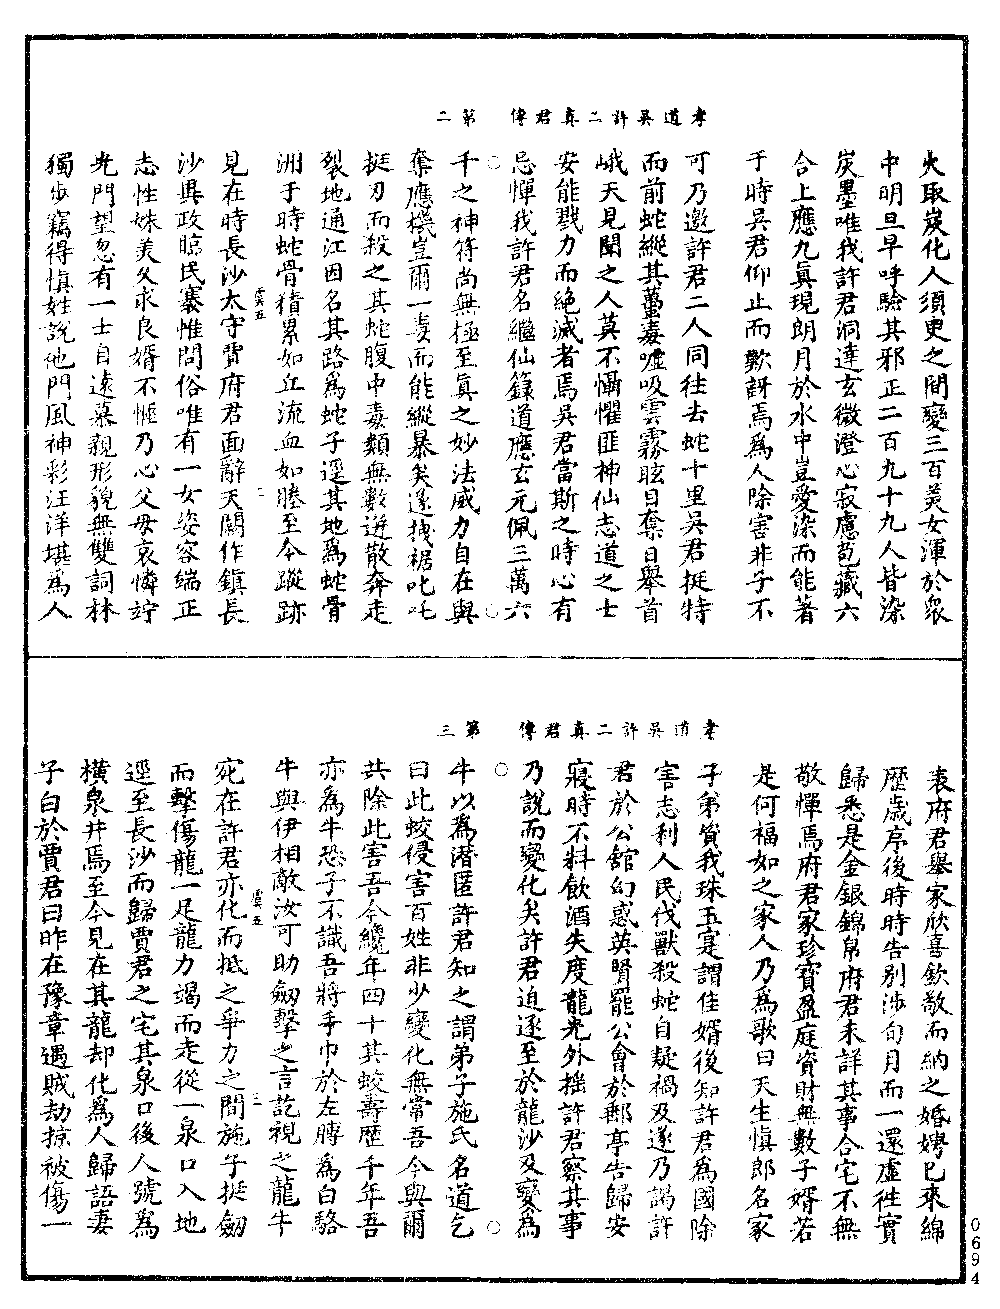 火取炭化人須臾之間變三百美女渾於衆
中明旦早呼驗其邪正二百九十九人皆染
炭墨唯我許君洞達玄微澄心寂慮苞藏六
合上應九眞現朗月於水中豈愛染而能著
于時吳君仰止而歎訝焉爲人除害非子不
孝道吳許二眞君傳 第二
可乃邀許君二人同往去蛇十里吳君挺特
而前蛇縱其蠆毒噓吸雲霧眩目奪日舉首
峨天見聞之人莫不懾懼匪神仙志道之士
安能戮力而絶滅者焉吳君當斯之時心有
忌憚我許君名繼仙籙道應玄元佩三萬六
千之神符尚無極至眞之妙法威力自在與
奪應機豈爾一毒而能縱暴矣遂拽裾叱吒
挺刃而殺之其蛇腹中毒類無數迸散奔走
裂地通江因名其路爲蛇子逕其地爲蛇骨
洲于時蛇骨積累如丘流血如塍至今蹤跡
虞五 二
見在時長沙太守賈府君面辭天闕作鎮長
沙與政臨民褰帷問俗唯有一女姿容端正
志性姝美父求良婿不愜乃心父母哀憐竚
光門望忽有一士自遠慕親形貌無雙詞林
獨步竊得愼姓說他門風神彩汪洋堪爲人
表府君舉家欣喜欽敬而納之婚娉已來綿
歷歲序後時時告別涉旬月而一還虛往實
歸悉是金銀錦帛府君未詳其事合宅不無
敬憚焉府君家珍寶盈庭資財無數子婿若
是何福如之家人乃爲歌曰天生愼郎名家
孝道吳許二眞君傳 第三
子弟貨我珠玉寔謂佳婿後知許君爲國除
害志利人民伐獸殺蛇自疑禍及遂乃謁許
君於公館幻惑英賢罷公會於郵亭告歸安
寢時不料飲酒失度龍光外搖許君察其事
乃說而變化矣許君迫逐至於龍沙及變爲
牛以爲潛匿許君知之謂弟子施氏名道乞
曰此蛟侵害百姓非少變化無常吾今與爾
共除此害吾今纔年四十其蛟壽歷千年吾
亦爲牛恐子不識吾將手巾於左膊爲白駱
牛與伊相敵汝可助劔擊之言訖視之龍牛
虞五 三
宛在許君亦化而抵之爭力之間施子挺劔
而擊傷龍一足龍力竭而走從一泉口入地
逕至長沙而歸賈君之宅其泉口後人號爲
橫泉井焉至今見在其龍却化爲人歸語妻
子白於賈君曰昨在豫章遇賊劫掠被傷一
0694